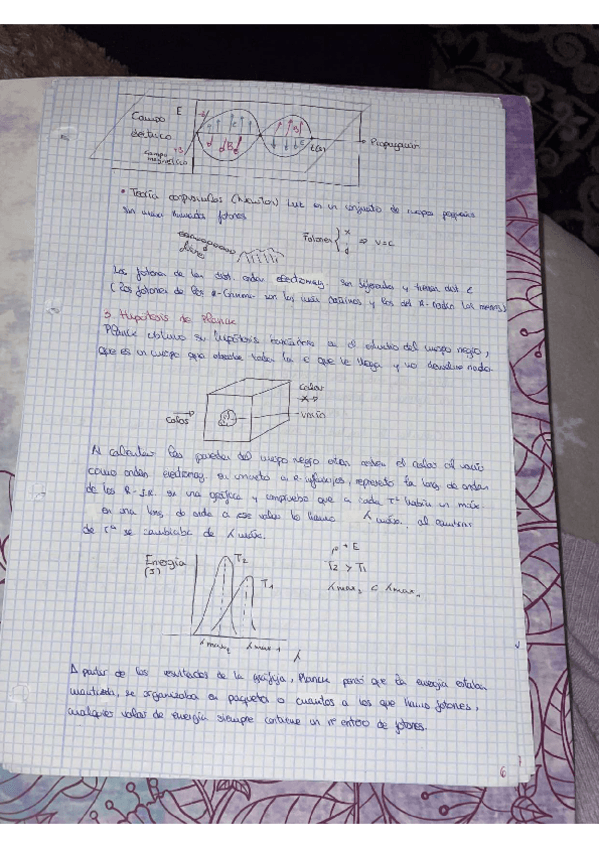 E
Campo
eléctrico
campo
magnético
Propagación
• Teoría corpuscular (Newton) Luz es un conjunto de cuerpos pequeños
sin masa llamados fotones
Fotones { x ⇒ v=c
Los fotones de las dist. ondas electromag son diferentes y tienen dist E
(Los fotones de los R-Gamma son los más dañinos y los del R-radio los menos)
3. Hipótesis de Planck
Planck obtuvo su hipótesis basándose en el estudio del cuerpo negro,
que es un cuerpo que absorbe toda la E que le llega y no devuelve nada.
calor
calor
vacío
Al calentar las paredes del cuerpo negro ceden el calor al vacío
como ondas electromag. la long de ondas
de los en una gráfica y comprueba que a cada Tª había un máx
en una long. de onda a ese valor lo llamo λ máx. al cambiar
de Tª se cambiaba de λ máx.
Energía
(J)
T2
T1
λ max2 λ max1
λ
+ E
T2 > T1
λmax2 < λmax1
A partir de los resultados de la gráfica, Planck pensó que la energía estaba
cuantizada, se organizaba en paquetes o cuantos a los que llamo fotones,
cualquier valor de energía siempre contiene un nº entero de fotones.
6